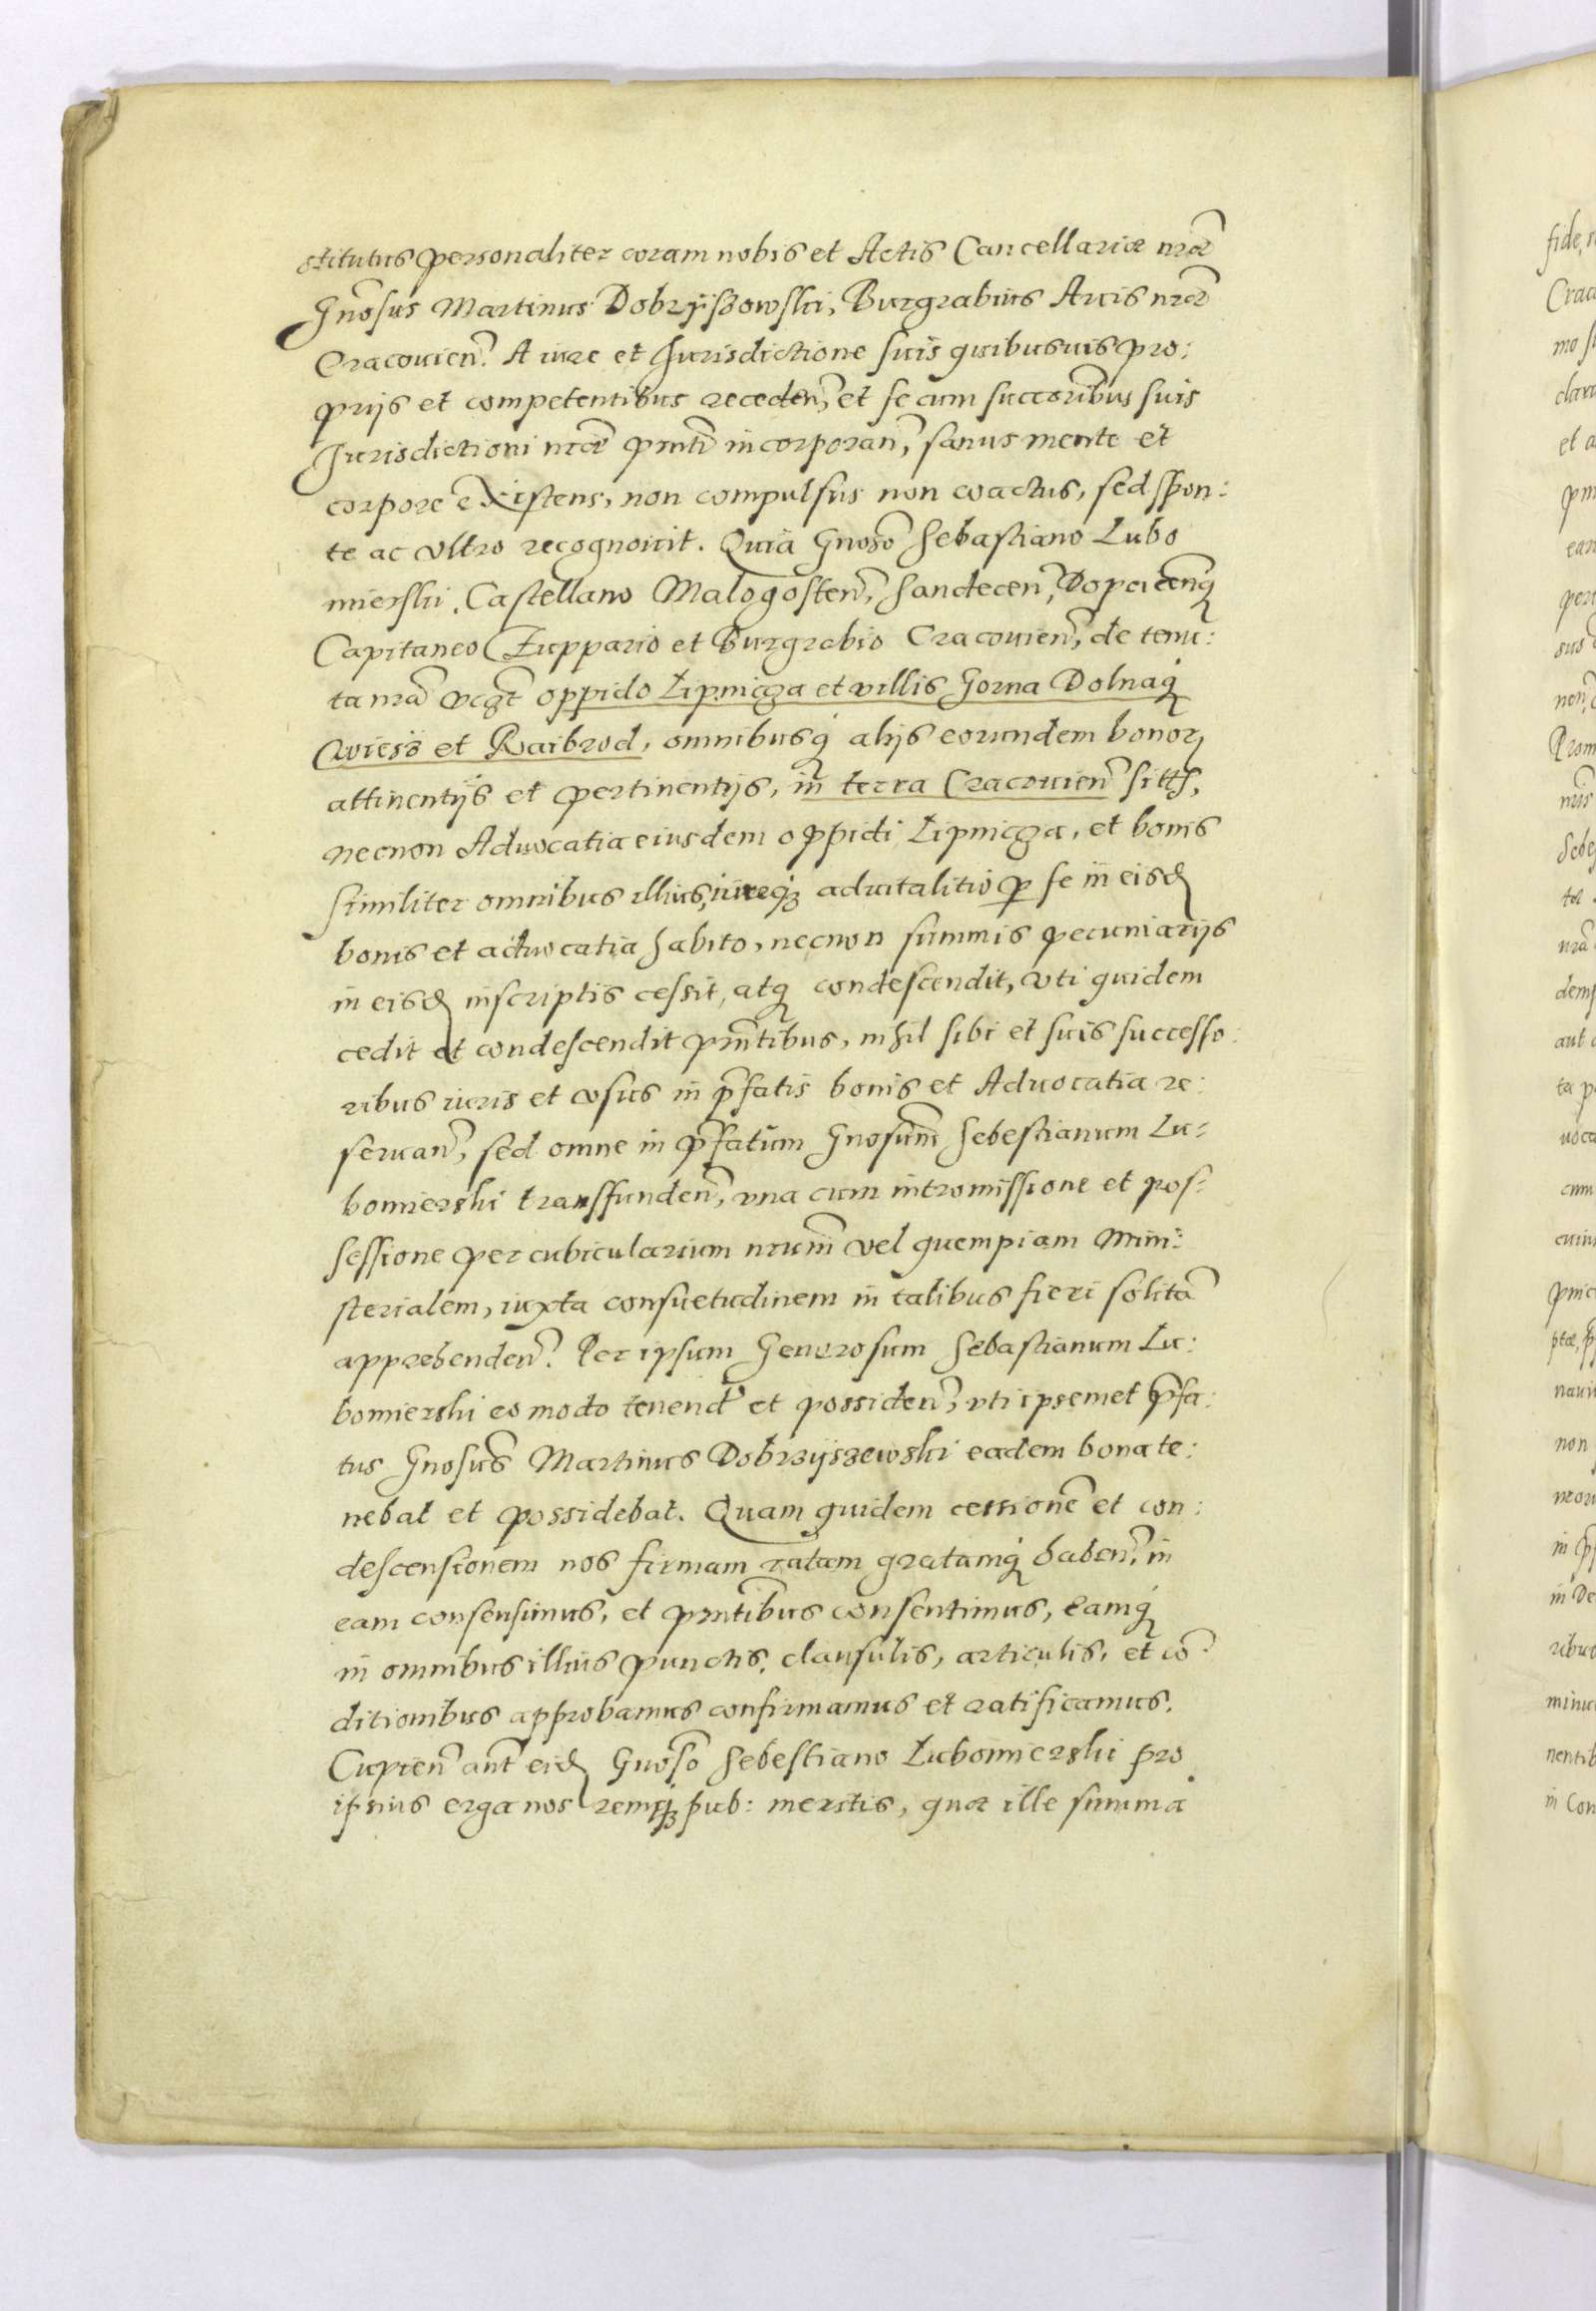 stitutus personaliter coram nobis et Actis Cancellariæ nr̃æ
Gnõsus Martinus Dobrÿszowski, Burgrabius Arcis nr̃æ
Cracouieñ. A iure et Jurisdictione suis quibusuis pro:
prijs et competentibus recedeñ, et se cum succoribus suis
Jurisdictioni nr̃æ pnti incorporañ, sanus mente et
corpore existens, non compulsus non coactus, sed spon:
te ac vltro recognouit. Quia Gnoso Sebastiano Lubo
mierski, Castellano Malogosteñ, Sandeceñ, Dopcicenq̃
Capitaneo Zuppario et Burgrabio Cracouieñ, de tenu:
ta nr̃a vcz̃t oppido Lipnicza et villis Gorna Dolnaq̃
Wiesz et Raibrod, omnibusq̃ alijs eorundem bonoꝝ
attinentijs et pertinentijs, in terra Cracouieñ sitts,
necnon Aduocatia eiusdem oppidi Lipnicza, et bonis
similiter omnibus illius, iureqȝ aduitalitio ꝑ se in eisd
bonis et aduocatia habito, necnon summis pecuniarijs
in eisd inscriptis cessit, atq̃ condescendit, vti quidem
cedit et condescendit pñtibus, nihil sibi et suis successo:
ribus iuris et vsus in p̃fatis bonis et Aduocatia re:
seruañ, sed omne in p̃fatum Gnosum̃ Sebestianum Lu:
bomierski transfundeñ, vna cum intromissione et pos:
sessione per cubicularium nrum̃ vel quempiam Mini:
sterialem, iuxta consuetudinem in talibus fieri solitã
apprehendeñ. Per ipsum Generosum Sebastianum Lu:
bomierski eo modo tenend et possideñ, vti ipsemet p̃fa:
tus Gnosus̃ Martinus Dobrzÿszewski eadem bona te:
nebat et possidebat. Quam quidem cessionẽ et con:
descensionem nos firmam ratam gratamq̃ habeñ, in
eam consensimus, et pntibus̃ consentimus, eamq̃
in omnibus illius punctis, clausulis, articulis, et cõ
ditionibus approbamus confirmamus et ratificamus.
Cupieñ aut̃ eid Gnoso̊ Sebestiano Lubomierski pro
ipsius erga nos remqȝ pub: meritis, quæ ille summa